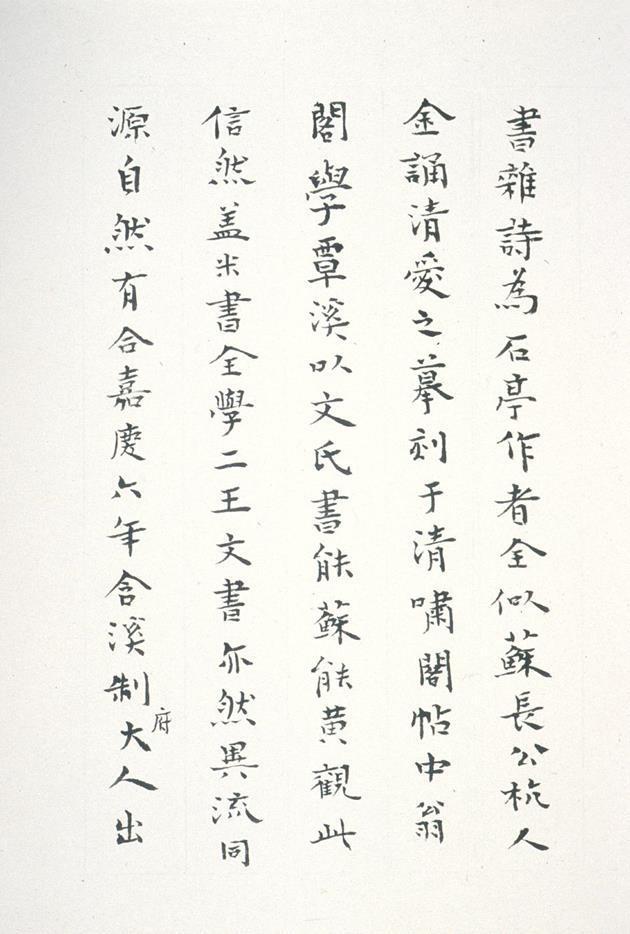 書雜詩為石亭作者全似蘇長公杭人
金誦清愛之摹刻于清嘯閣帖中翁
閣學覃溪以文氏書能蘇能黃觀此
信然盖米書全學二王文書亦然異流同
源自然有合嘉慶六年含溪制府大人出